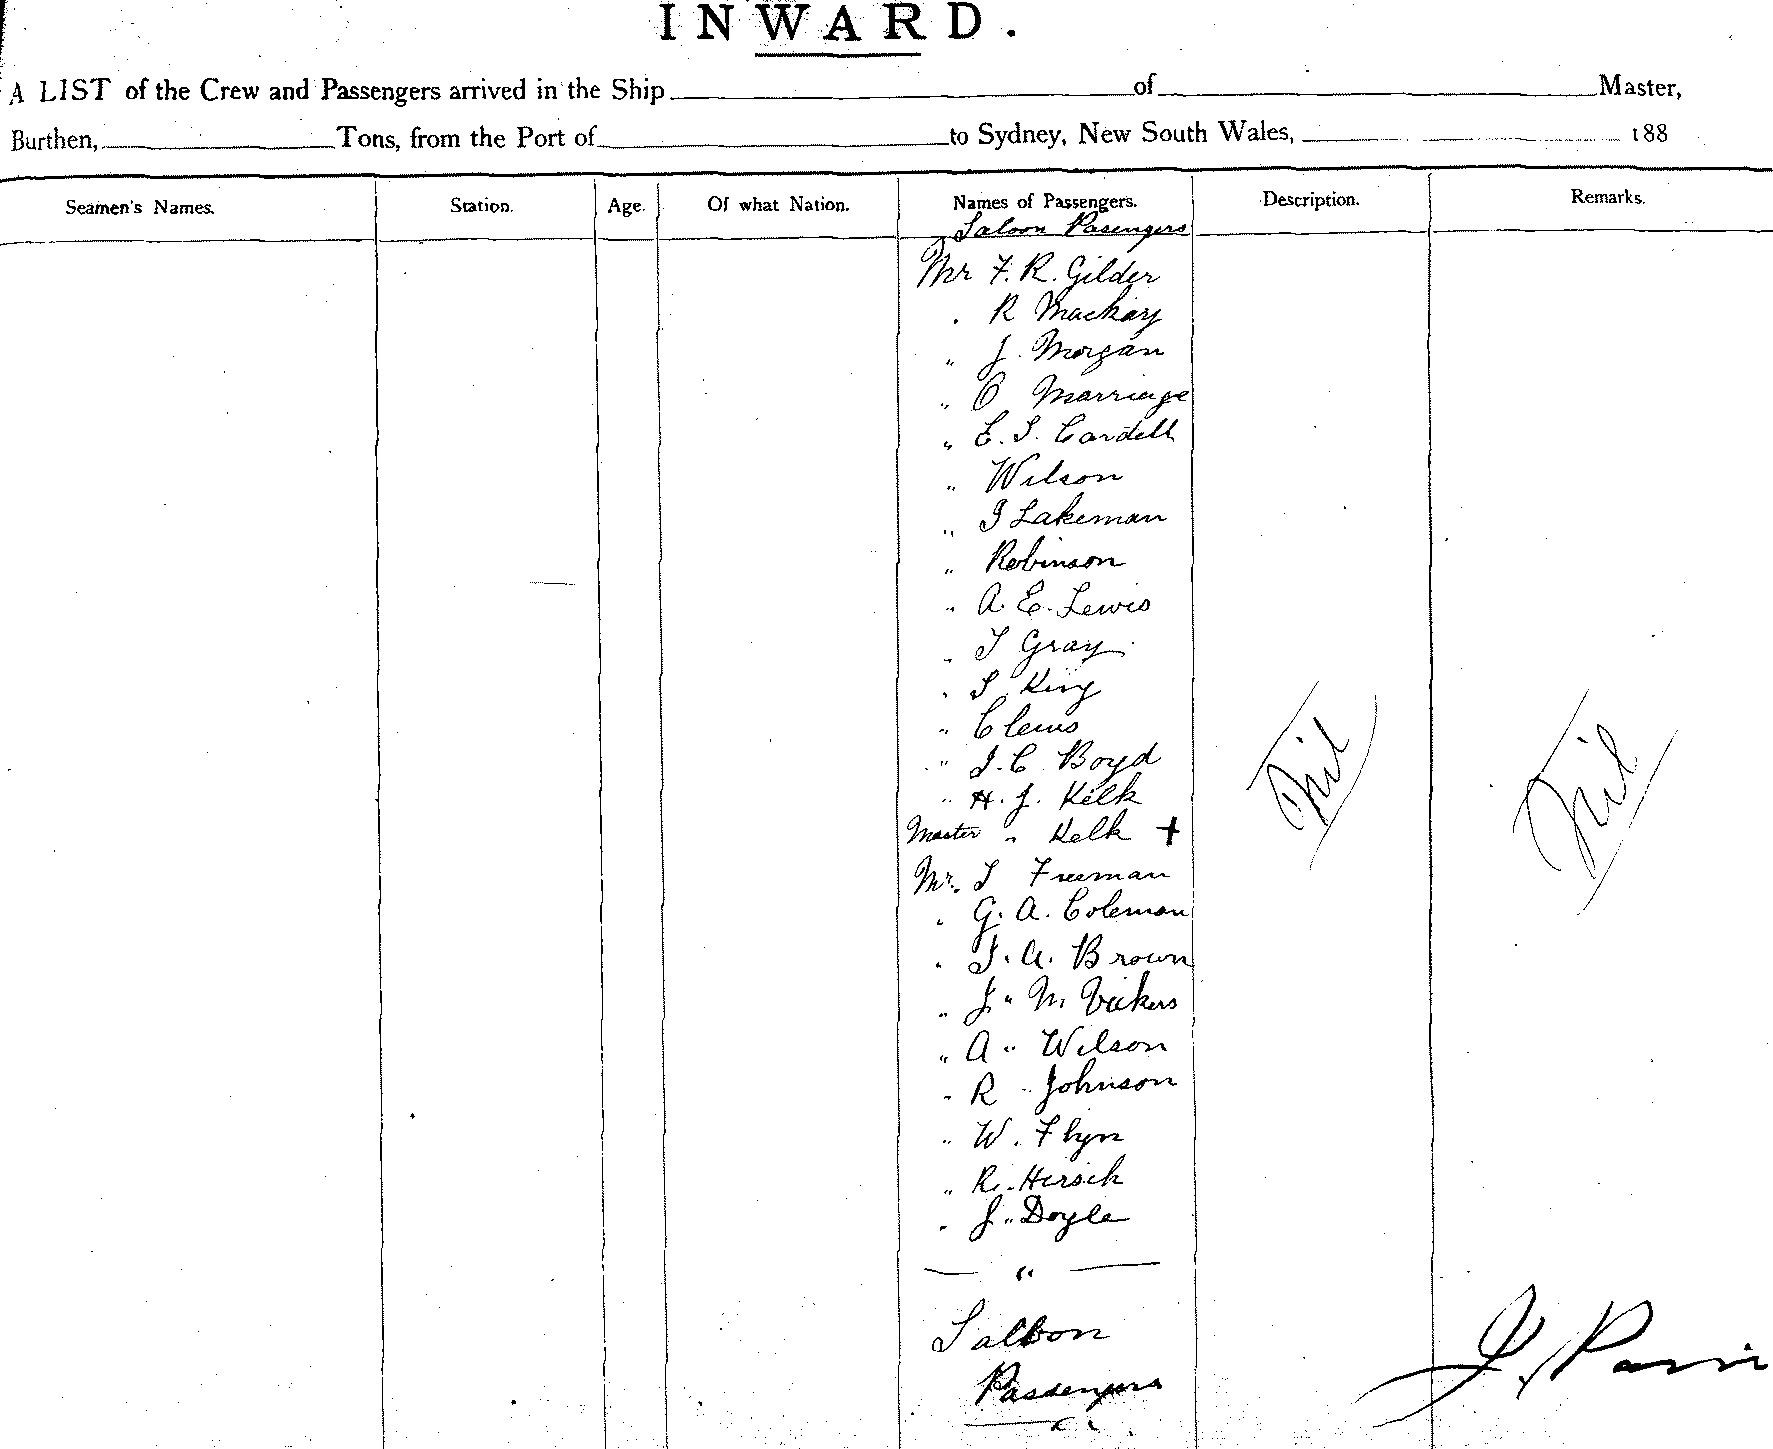 INWARD.
A LIST of the Crew and Passengers arrived in the Ship of Master,
Burthen, Tons, from the Port of to Sydney, New South Wales, 188
Seamen's Names. Station. Age. Of what Nation. Names of Passengers. Description. Remarks.
Saloon Pasengers
Mr F. R. Gilder
. R Mackay
" J. Morgan
" O Marriage
" E. S. Cardell
" Wilson
" J Lakeman
" Robinson
" A. E. Lewis
" T Gray
" S King
" Clews
" J. C. Boyd
" H. J. Kelk
Master " Kelk +
Nil Nil
Mr. J Freeman
" G. A. Coleman
" J. A. Brown
" J. M. Vickers
" A " Wilson
" R Johnson
" W. Flyn
" R. Hirsch
" J. Doyle
— " —
Saloon
Passengers